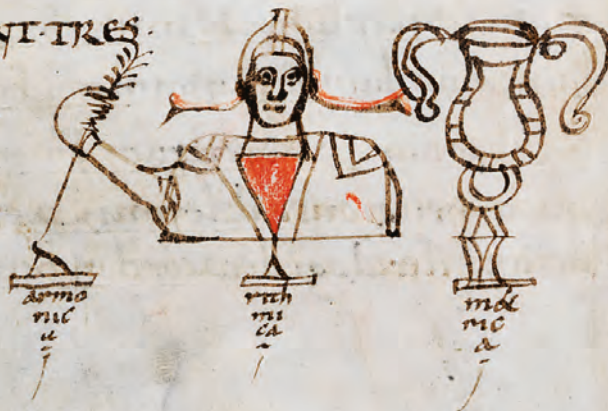 NT·TRES·
armo
nic
a
rith
mi
ca
m&
ric
a